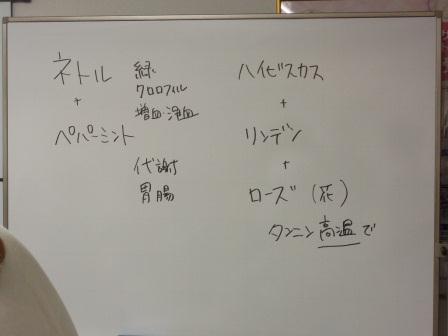 ネトル 緑
クロロフィル
+
増血・浄血
ペパーミント
代謝
胃腸
ハイビスカス
+
リンデン
+
ローズ(花)
タンニン高温で